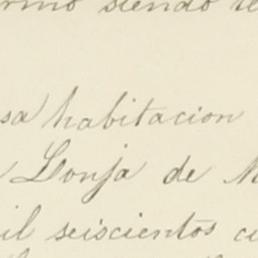 rmo siendo
sa habitacion
Lonja de
il seiscientos